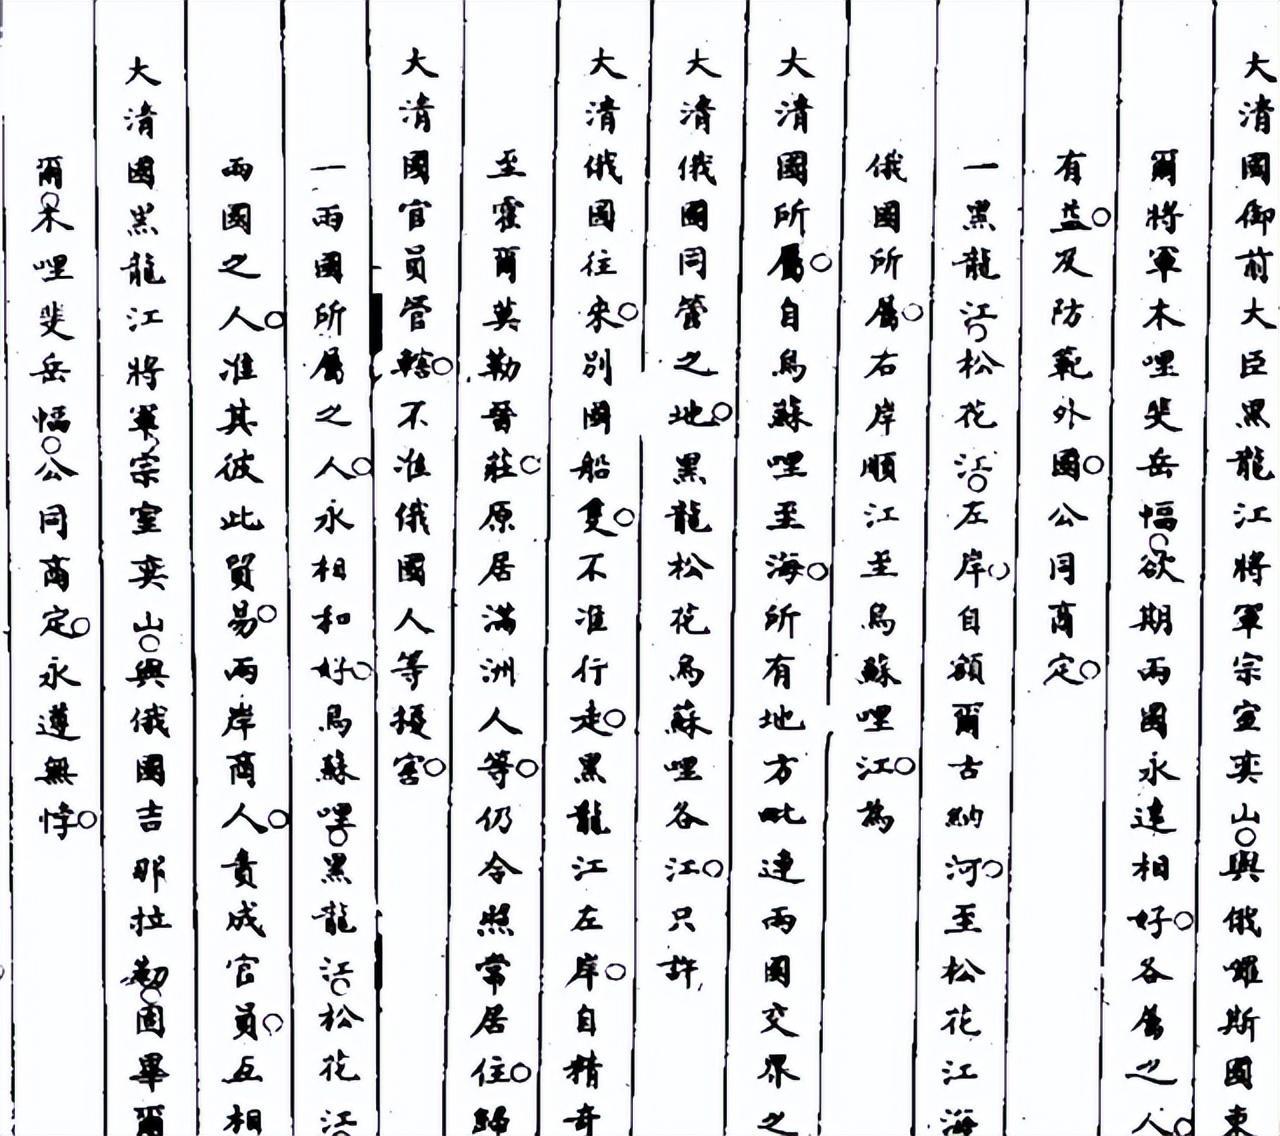 大清國御前大臣黑龍江將軍宗室奕山。與俄囉斯國東
爾將軍木哩斐岳幅。欲期兩國永遠相好。各屬之人。
有益。及防範外國。公同商定。
一黑龍江。松花江。左岸。自額爾古納河。至松花江海
俄國所屬。右岸順江至烏蘇哩江。為
大清國所屬。自烏蘇哩至海。所有地方毗連兩國交界之
大清俄國同管之地。黑龍松花烏蘇哩各江。只許
大清俄國往來。別國船隻。不准行走。黑龍江左岸。自精奇
至霍爾莫勒晉莊。原居滿洲人等。仍令照常居住。歸
大清國官員管轄。不准俄國人等擾害。
一兩國所屬之人。永相和好。烏蘇哩。黑龍江。松花江。
兩國之人。准其彼此貿易。兩岸商人。責成官員。互相
大清國黑龍江將軍宗室奕山。與俄國吉那拉勒。固畢爾
爾。木哩斐岳幅。公同商定。永遵無悖。